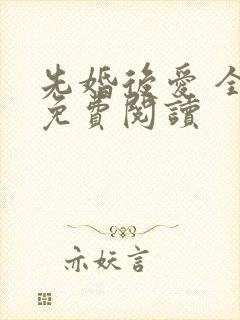 先婚後愛 全
免費閱讀
亦妖言